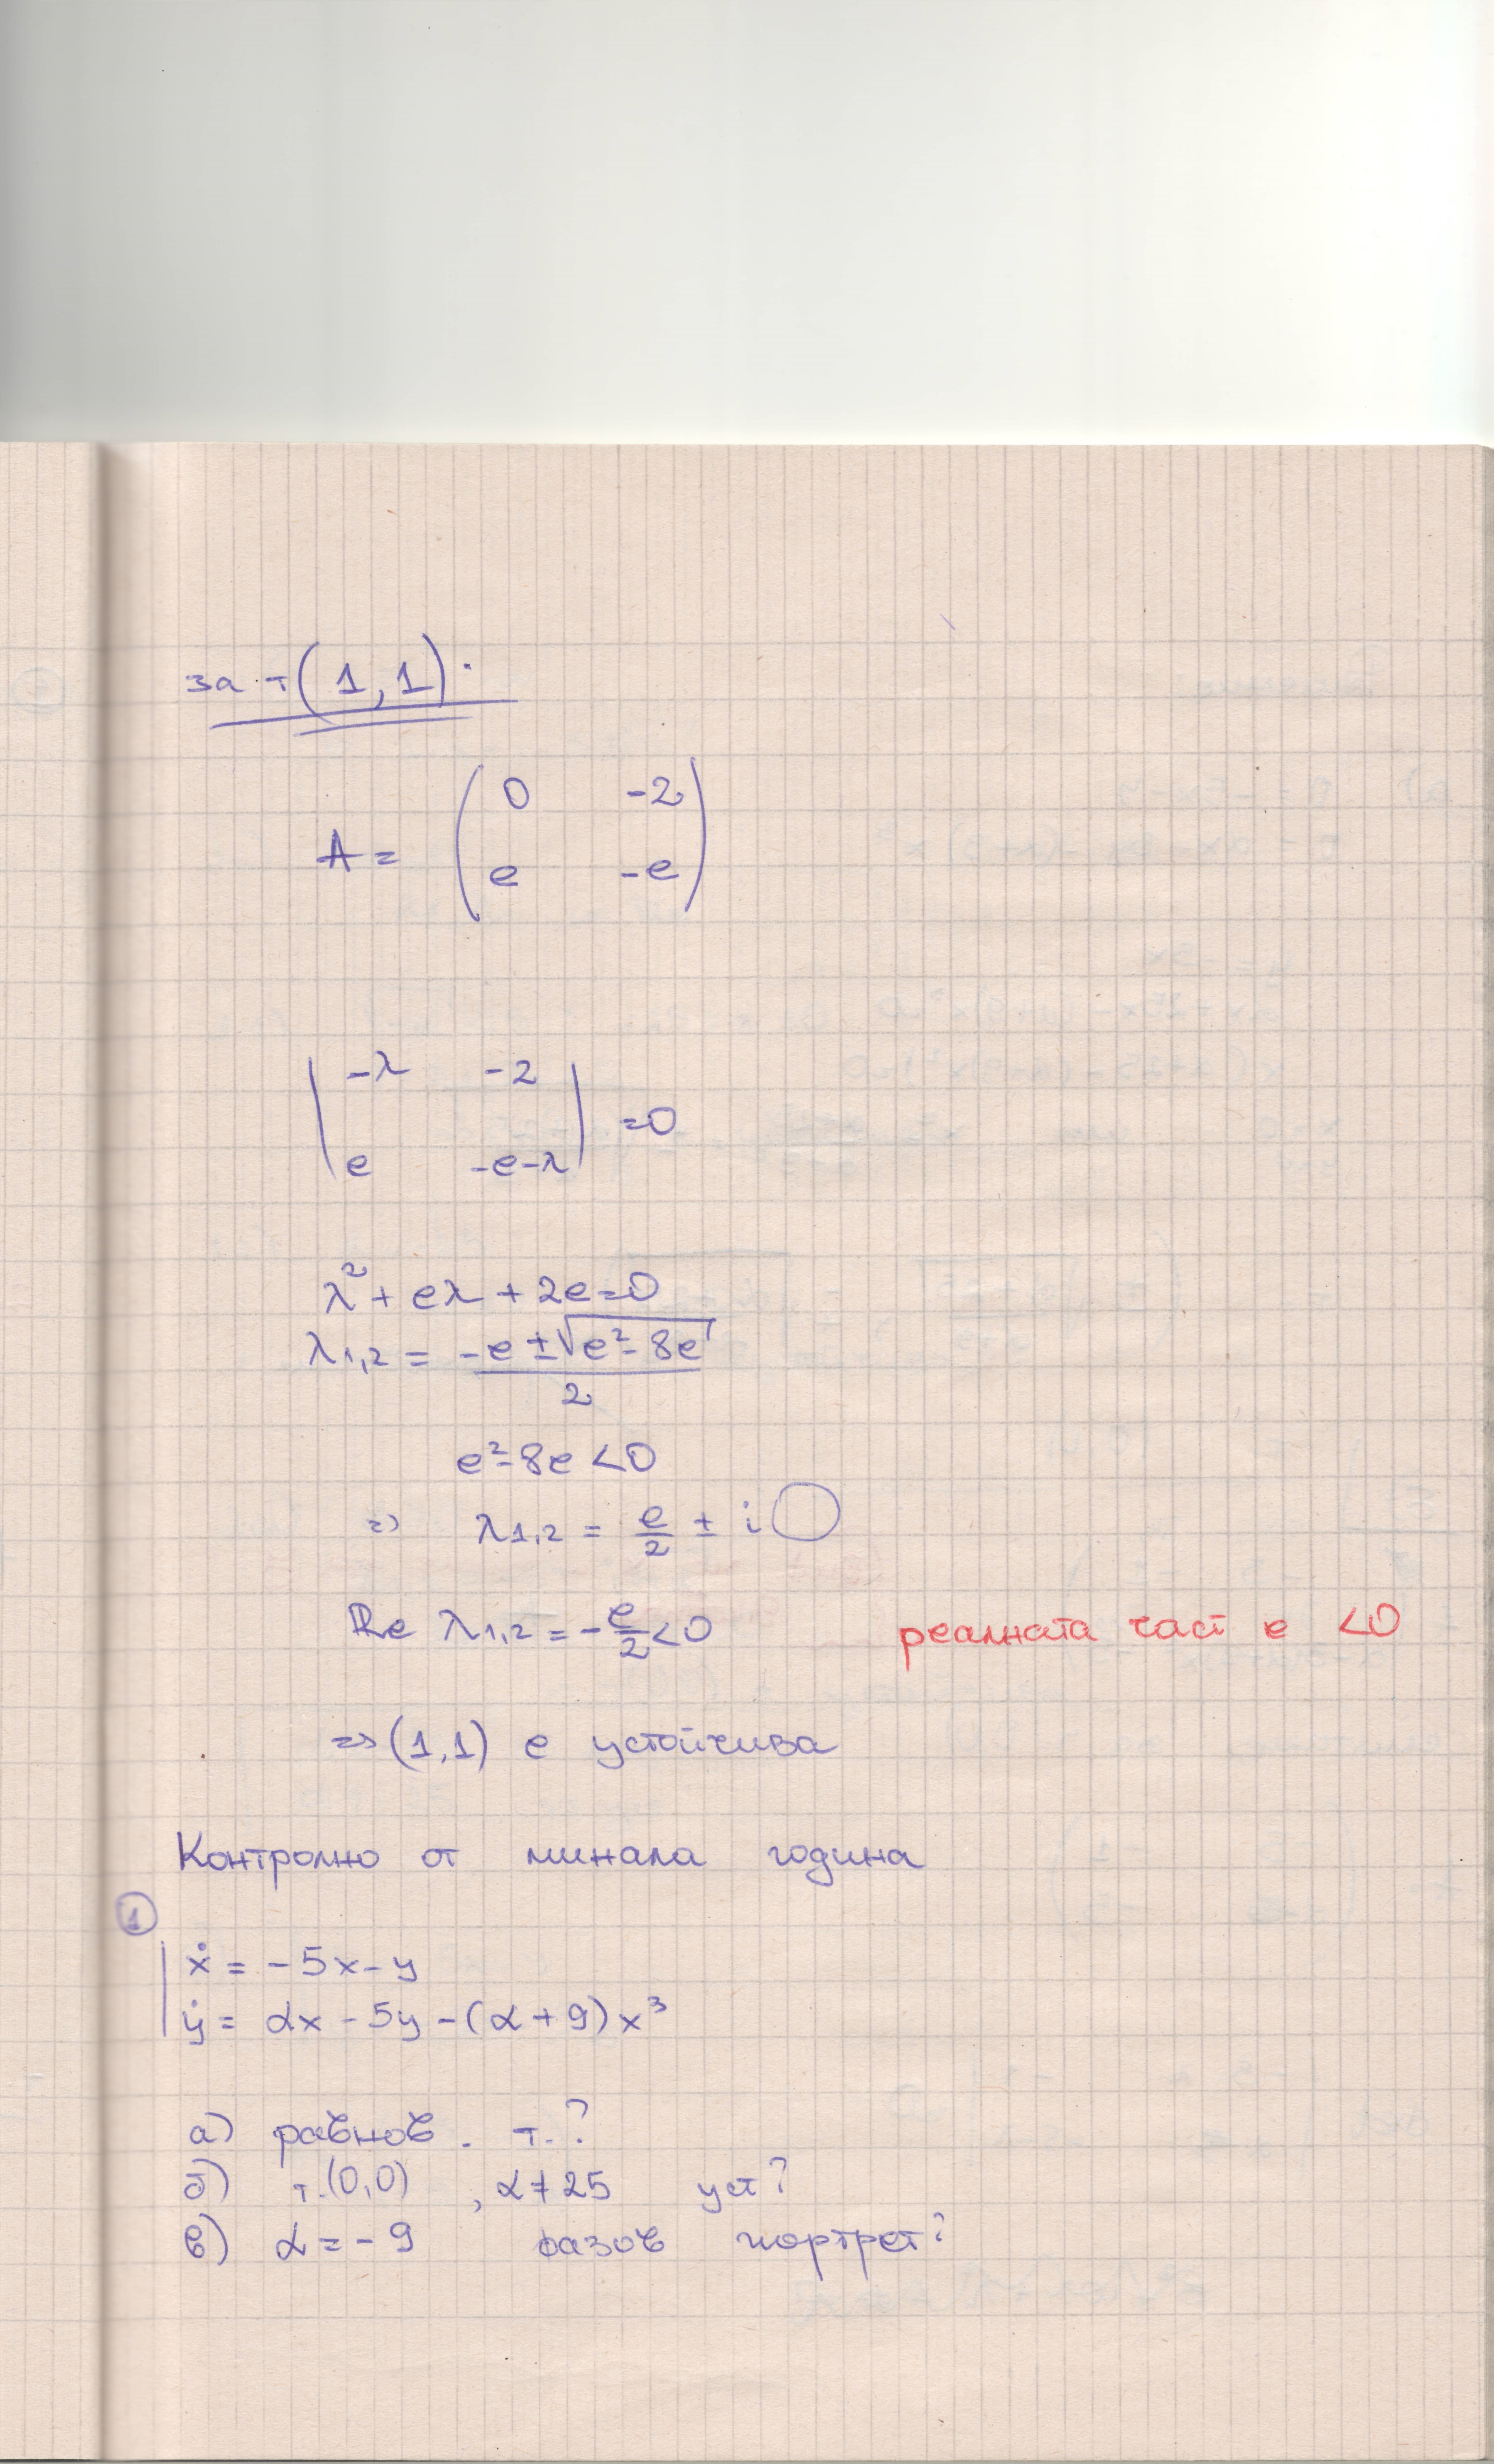 за т(1,1).
A = ( 0 -2
e -e )
| -λ -2
e -e-λ | =0
λ²+eλ+2e=0
λ1,2 = (-e±√(e²-8e))/2
e²-8e<0
=> λ1,2 = e/2 ± i◯
Re λ1,2 = -e/2<0 реалната част е <0
=> (1,1) е устойчива
Контролно от минала година
①
ẋ = -5x-y
ẏ = αx-5y-(α+9)x³
а) равнов. т.?
б) т.(0,0) , α≠25 уст?
в) α=-9 фазов портрет?